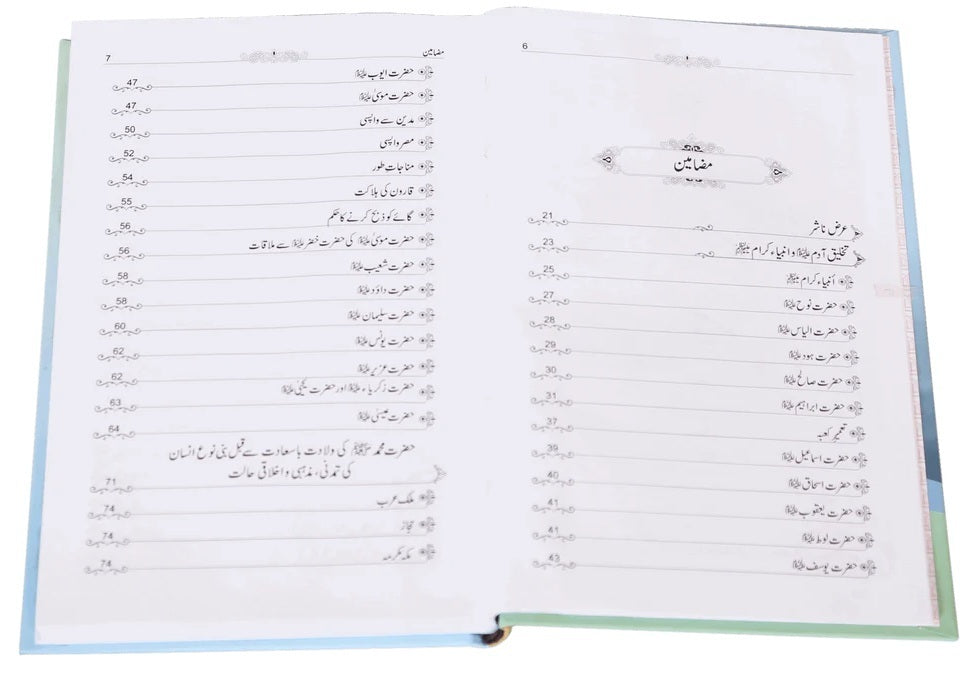 6
مضامین
عرض ناشر 21
تخلیق آدم علیہ السلام و انبیاء کرام علیہم السلام 23
أنبیاء کرام علیہم السلام 25
حضرت نوح علیہ السلام 27
حضرت الیاس علیہ السلام 28
حضرت ہود علیہ السلام 29
حضرت صالح علیہ السلام 30
حضرت ابراہیم علیہ السلام 31
تعمیر کعبہ 37
حضرت اسماعیل علیہ السلام 39
حضرت اسحاق علیہ السلام 40
حضرت یعقوب علیہ السلام 41
حضرت لوط علیہ السلام 41
حضرت یوسف علیہ السلام 43
مضامین 7
حضرت ایوب علیہ السلام 47
حضرت موسیٰ علیہ السلام 47
مدین سے واپسی 50
مصر واپسی 52
مناجاتِ طور 54
قارون کی ہلاکت 55
گائے کو ذبح کرنے کا حکم 56
حضرت موسیٰ علیہ السلام کی حضرت خضر علیہ السلام سے ملاقات 56
حضرت شعیب علیہ السلام 58
حضرت داؤد علیہ السلام 58
حضرت سلیمان علیہ السلام 60
حضرت یونس علیہ السلام 62
حضرت عزیر علیہ السلام 62
حضرت زکریاء علیہ السلام اور حضرت یحییٰ علیہ السلام 63
حضرت عیسیٰ علیہ السلام 64
حضرت محمد ﷺ کی ولادت باسعادت سے قبل بنی نوع انسان
کی تمدنی، مذہبی و اخلاقی حالت 71
ملک عرب 74
حجاز 74
مکہ مکرمہ 74